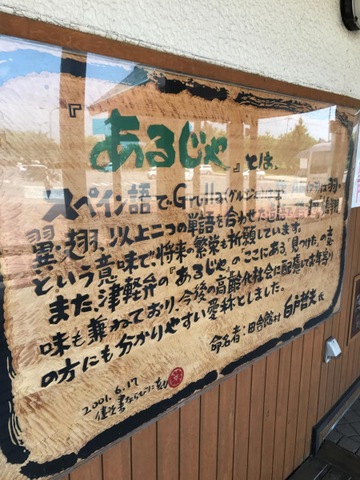 『あるじゃ』とは、
スペイン語でGrulla(グルジャ)
翼・翅、以上二つの単語を合わせた造語で
という意味で将来の繁栄を祈願しています。
また、津軽弁の『あるじゃ』の"ここにある、見つけた"の意
味も兼ねており、今後の高齢化社会に配慮しお年寄り
の方にも分かりやすい愛称としました。
命名者:田舎館村 白戸哲夫氏
2001.6.17